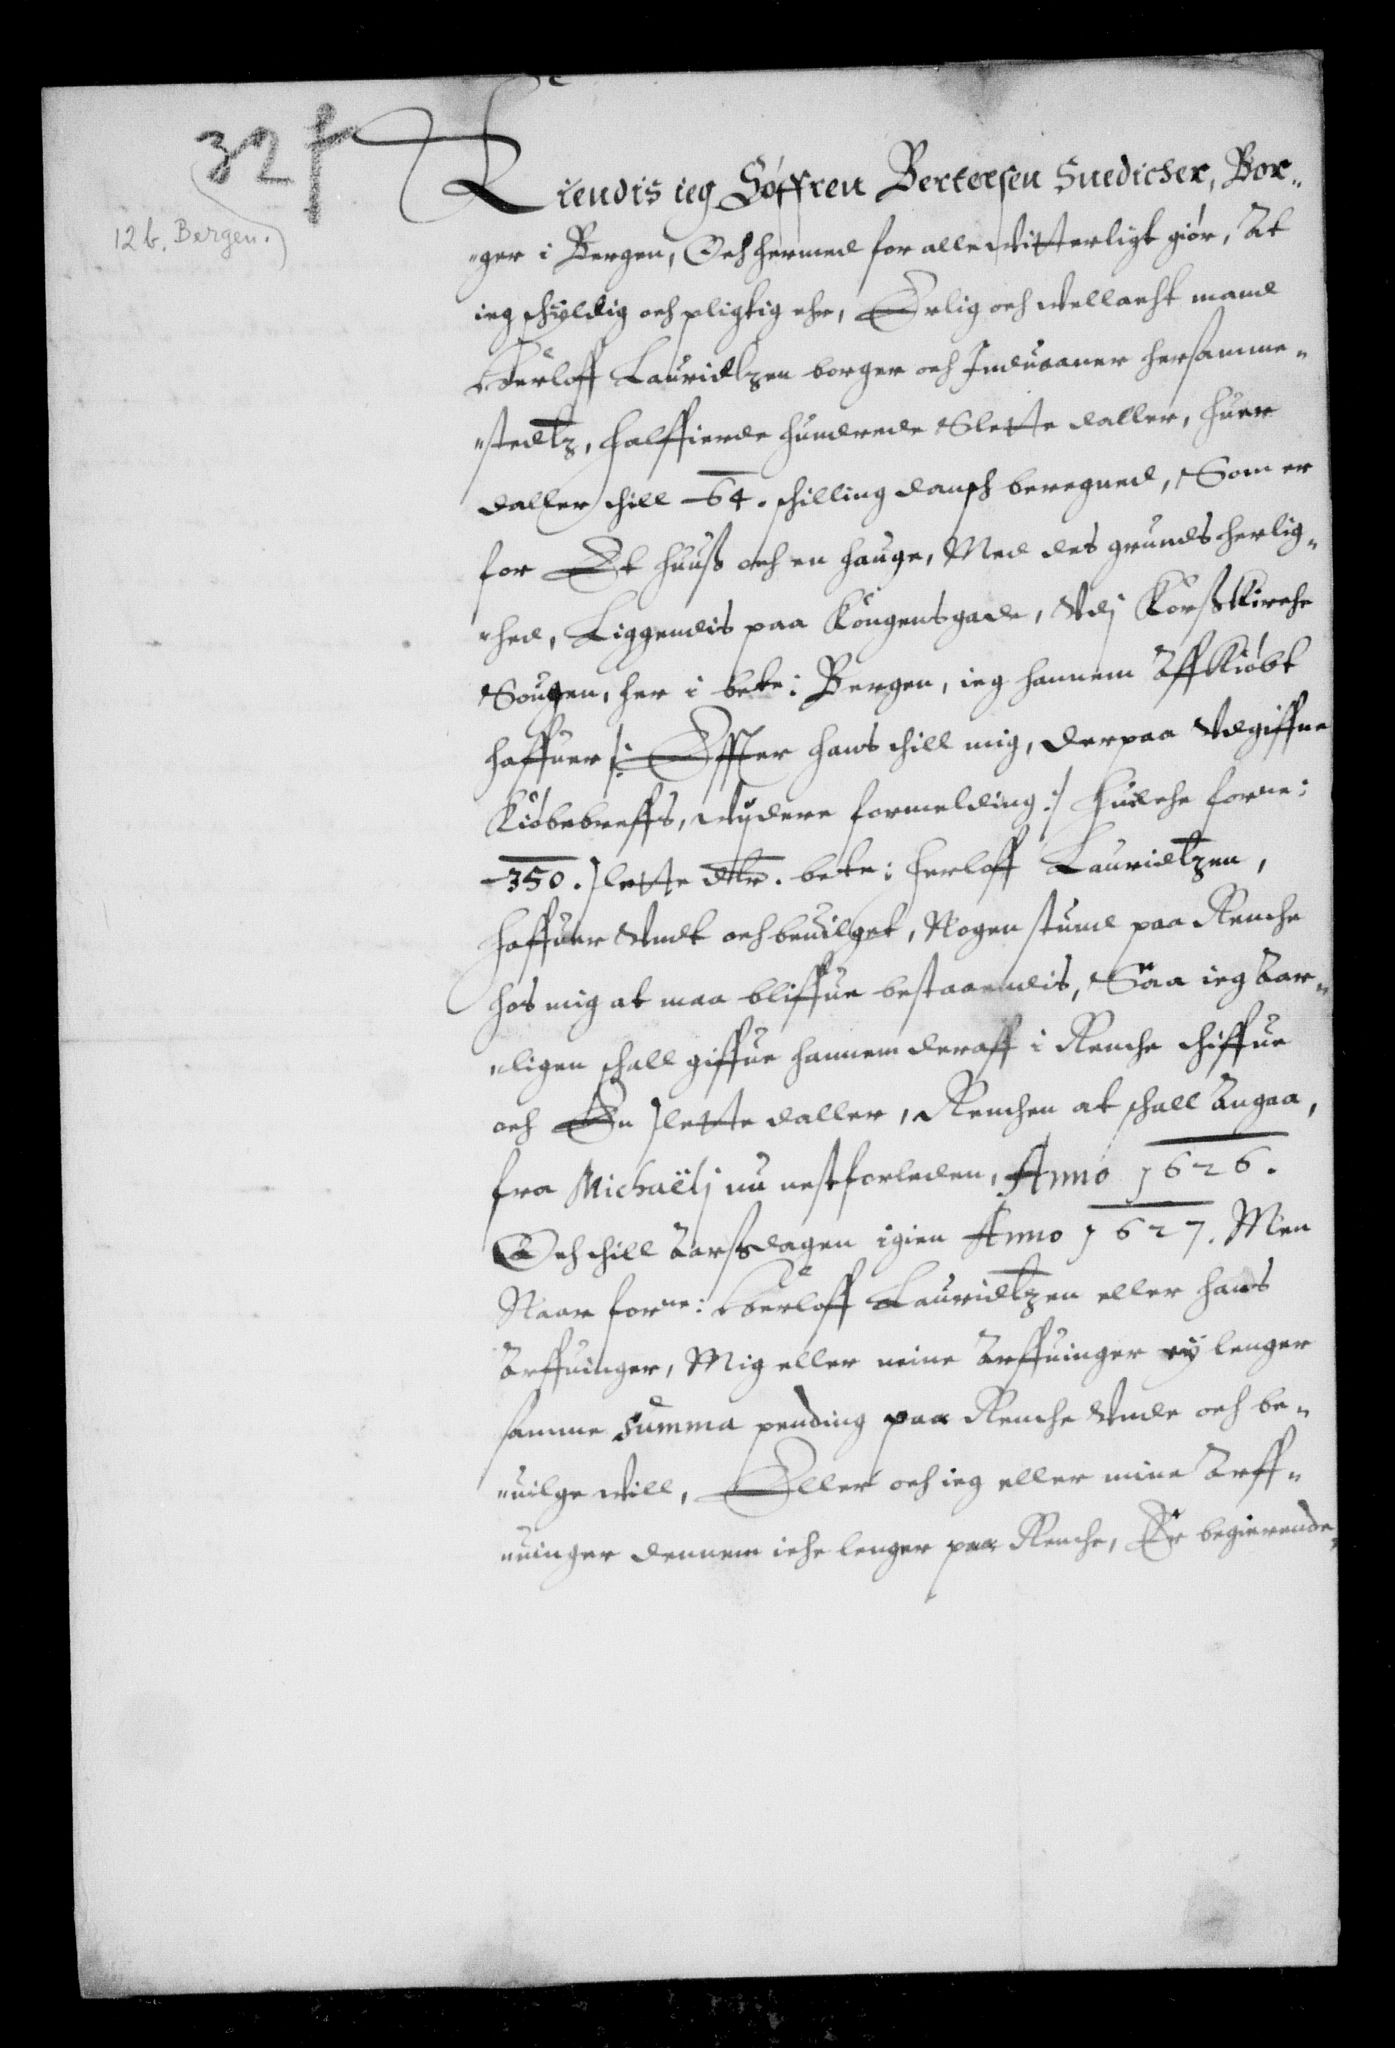 32 f
12 b. Bergen.)
Kiendis ieg Søffren Bertelsen Snedicher, Bor„
„ger i Bergen, Och hermed for alle witterligt giør, At
ieg schyldig och pligtig ehr, Erlig och wellacht mand
Herloff Lauridtzen borger och Induaaner hersamme„
„stedtz, halffierde hundrede Slette daller, huer
daller thill 64. schilling dansch beregned, Som er
for Et huuß och en hauge, Med des grunds herlig„
„hed, Liggendis paa Kongensgade, Vdj Korßkirche
Sougen, her i bete: Bergen, ieg hannem Affkiøbt
haffuer /: Effter hans thill mig, derpaa Vdgiffne
Kiøbebreffs, wydere formelding :/ Huilche forne:
350. slette dlr. bete: Herloff Lauridtzen,
haffuer Vndt och beuilget, Nogen stund paa Renthe
hos mig at maa bliffue bestaaendis, Saa ieg Aar„
„ligen schall giffue hannem deraff i Renthe thiffue
och En slette daller, Renthen at schall Angaa,
fra Michaëlj nu nestforleden, Anno 1626.
Och thill Aarßdagen igien Anno 1627. Men
Naar forne: Herloff Lauridtzen eller hans
Arffuinger, Mig eller mine Arffuinger ey lenger
samme Summa pending paa Renthe Vnde och be„
„uilge will, Eller och ieg eller mine Arff„
„uinger dennem iche lenger paa Renthe, Er begierende,